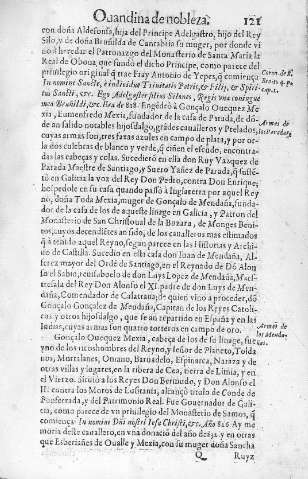 Ouandina de nobleza. 121
con doña Aldefonsa, hija del Principe Adelgastro, hijo del Rey
Silo, y de doña Brunilda de Cantabria su muger, por donde vi
no à heredar el Patronazgo del Monasterio de Santa Maria la
Real de Obona, que fundò el dicho Principe, como parece del
privilegio original q trae Fray Antonio de Yepes, q comiença
In nomine Sanctæ, & individuæ Trinitatis Patris, & Filij, & Spiri-
tus Sancti, &c. Ego Adelgaster filius Silonis, Regis una cum
mea Brunilde, &c. Era de 818. Engēdrò à Gonçalo Ouequez Me
xia, y Eumenfredo Mexia, fundador de la casa de Parada, dō
de an salido notables hijosdalgo, grādes cavalleros y Prelados,
cuyas armas son, tres faxas azules en campo de plata, y por or
la dos cierpes de blanco y verde, q ciñen el escudo, encontra
das las cabeças y colas. Sucedieron en ella don Ruy Vazquez de
Parada Maestre de Santiago, y Suero Yañez de Parada, q susten
tò en Galizia la voz del Rey Don Pedro, contra Don Enrique;
hospedole en su casa quando passò à Inglaterra por aquel Rey
no, doña Toda Mexia, muger de Gonçalo de Mendaña, funda-
dor de la casa de los de aqueste linage en Galicia, y Patron del
Monasterio de San Christoual de la de Monges Beni-
tos, cuyos decendientes an sido, de los cavalleros mas estimados
q à tenido aquel Reyno, segun parece en las Historias y Archi-
vo de Castilla. Sucedio en esta casa don Iuan de Mendaña, Al-
ferez mayor del Ordē de Santiago, en el Reynado de Dō Alon
so el Sabio, revisabuelo de don Luys Lopez de Mendaña, Mae
stresala del Rey Don Alonso el XI. padre de don Luys de Men-
daña, Comendador de Calatrava, de quien vino a proceder, dō
Gonçalo Gonçalez de Mendaña, Capitan de los Reyes Catoli-
cos, y otros hijosdalgo, que se an repartido en España y en In
dias, cuyas armas son quatro torreros en campo de oro.
Gonçalo Ouequez Mexia, cabeça de los de su linage, fue v-
no de los ricoshombres del Reyno, y señor de Told
nos, Naraya y de
otras villas y lugares, en la ribera de Cea, tierra de Limia, y en
el Vierzo. Sirviò à los Reyes Don Bermudo, y Don Alonso el
III. contra los Moros de Lusitania, alcançò titulo de Conde de
Ponferrada, y del Patrimonio Real. Fue Governador de Gali-
cia, como parece de un privilegio del Monasterio de Samos, q
comiença: In nomine Dñi nostri Iesu Christi, &c. Año 816. Ay me
moria deste cavallero, en vna donacion del año de y en otras
que Esberiñes de Oualle y Mexia, con su muger doña Sancha
Q Ruyz
Armas de
los Paradas.
Armas de
los Menda-
ñas.